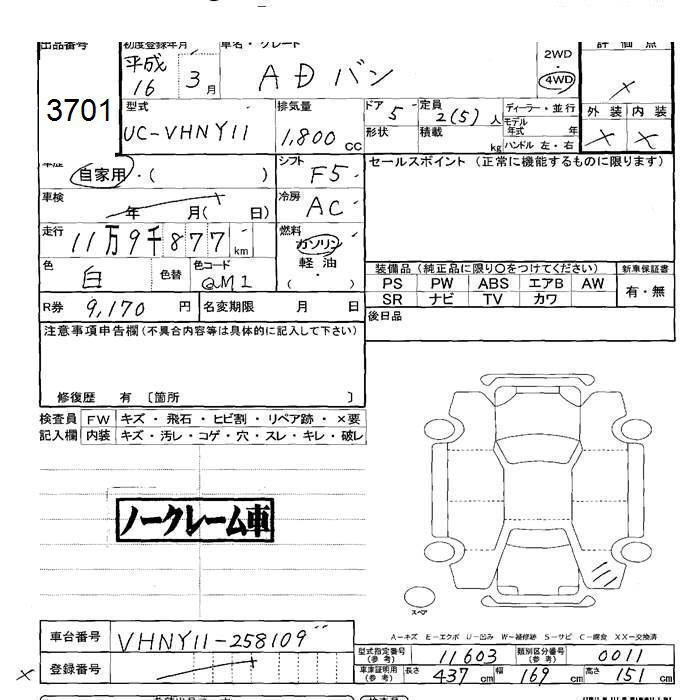 出品番号
3701
初度登録年月
平成
16 3 月
車名・グレード
ADバン
2WD
4WD
評価点
×
型式
UC-VHNY11
排気量
1,800 cc
ドア 5
形状
定員
2(5) 人
積載
kg
ディーラー・並行
モデル年式 年
ハンドル 左・右
外装 内装
× ×
車歴
自家用・( )
シフト
F5
セールスポイント (正常に機能するものに限ります)
車検
年 月( 日)
冷房
AC
走行
11万9千877 km
燃料
ガソリン
軽油
( ・ )
色
白
色替
色コード
QM1
装備品 (純正品に限り○をつけてください) 新車保証書
PS PW ABS エアB AW
SR ナビ TV カワ
有・無
R券 9,170 円
名変期限 月 日
後日品
注意事項申告欄(不具合内容等は具体的に記入して下さい)
修復歴 有 〔箇所 〕
検査員 FW キズ・飛石・ヒビ割・リペア跡・×要
記入欄 内装 キズ・汚レ・コゲ・穴・スレ・キレ・破レ
ノークレーム車
スペア
A-キズ E-エクボ U-凹み W-補修跡 S-サビ C-腐食 XX-交換済
車台番号
VHNY11-258109
登録番号
×
型式指定番号
(参考)
11603
類別区分番号
(参考)
0011
車庫証明用
(参考)
長さ 437 cm 幅 169 cm 高さ 151 cm